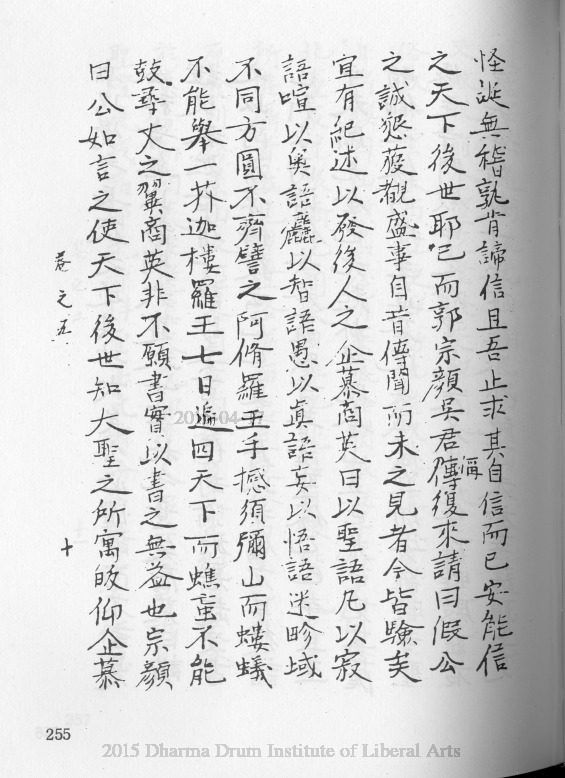 怪誕無稽孰肯諦信且吾止求其自信而已安能信
之天下後世耶已而郭宗顏吳君偁傳復來請曰假公
之誠懇獲覩盛事自昔傳聞而未之見者今皆驗矣
宜有紀述以發後人之企慕商英曰以聖語凡以寂
語喧以奧語麤以智語愚以真語妄以悟語迷畛域
不同方圓不齊譬之阿脩羅王手撼須彌山而螻蟻
不能舉一芥迦樓羅王七日遍四天下而蟭蜚不能
鼓尋丈之翼商英非不願書實以書之無益也宗顏
曰公如言之使天下後世知大聖之所寓皈仰企慕
卷之五
十
255
2015 Dharma Drum Institute of Liberal Arts